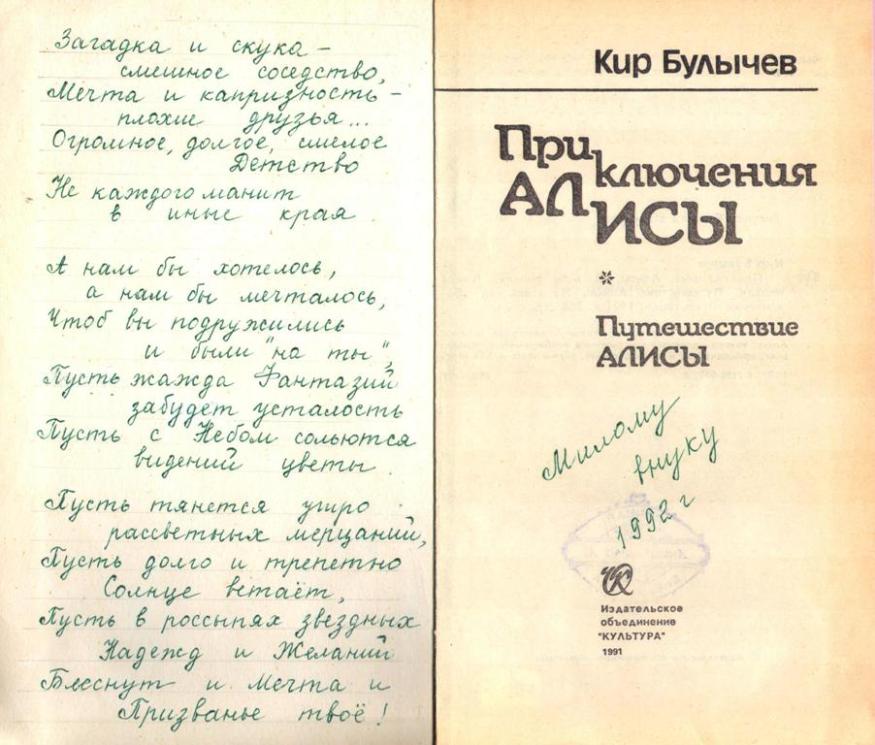 Загадка и скука –
смешное соседство,
Мечта и капризность –
плохие друзья...
Огромное, долгое, смелое
Детство
Не каждого манит
в иные края.
А нам бы хотелось,
а нам бы мечталось,
Чтоб вы подружились
и были "на ты",
Пусть жажда Фантазий
забудет усталость
Пусть с Небом сольются
видений цветы.
Пусть тянется утро
рассветных мерцаний,
Пусть долго и трепетно
Солнце встаёт,
Пусть в россыпях звездных
Надежд и Желаний
Блеснут и Мечта и
Призванье твоё!
Кир Булычев
Приключения
АЛИСЫ
*
Путешествие
АЛИСЫ
Милому
внуку
1992 г
Издательское
объединение
"КУЛЬТУРА"
1991